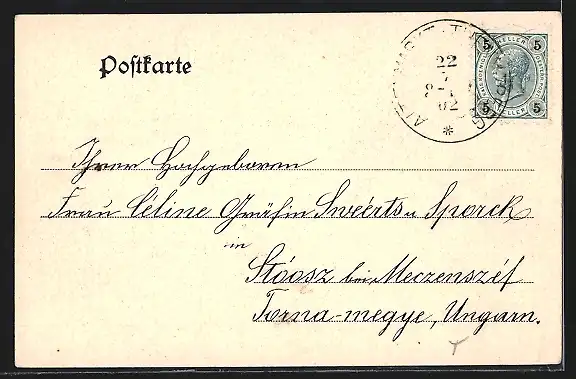 Postkarte
22
7
02
5 HELLER 5
5 HELLER 5
Ihrer Hochgeboren
Frau Céline Gräfin Sweérts u Sporck
in
Stóosz bei Meczenszéf
Torna-megye, Ungarn.